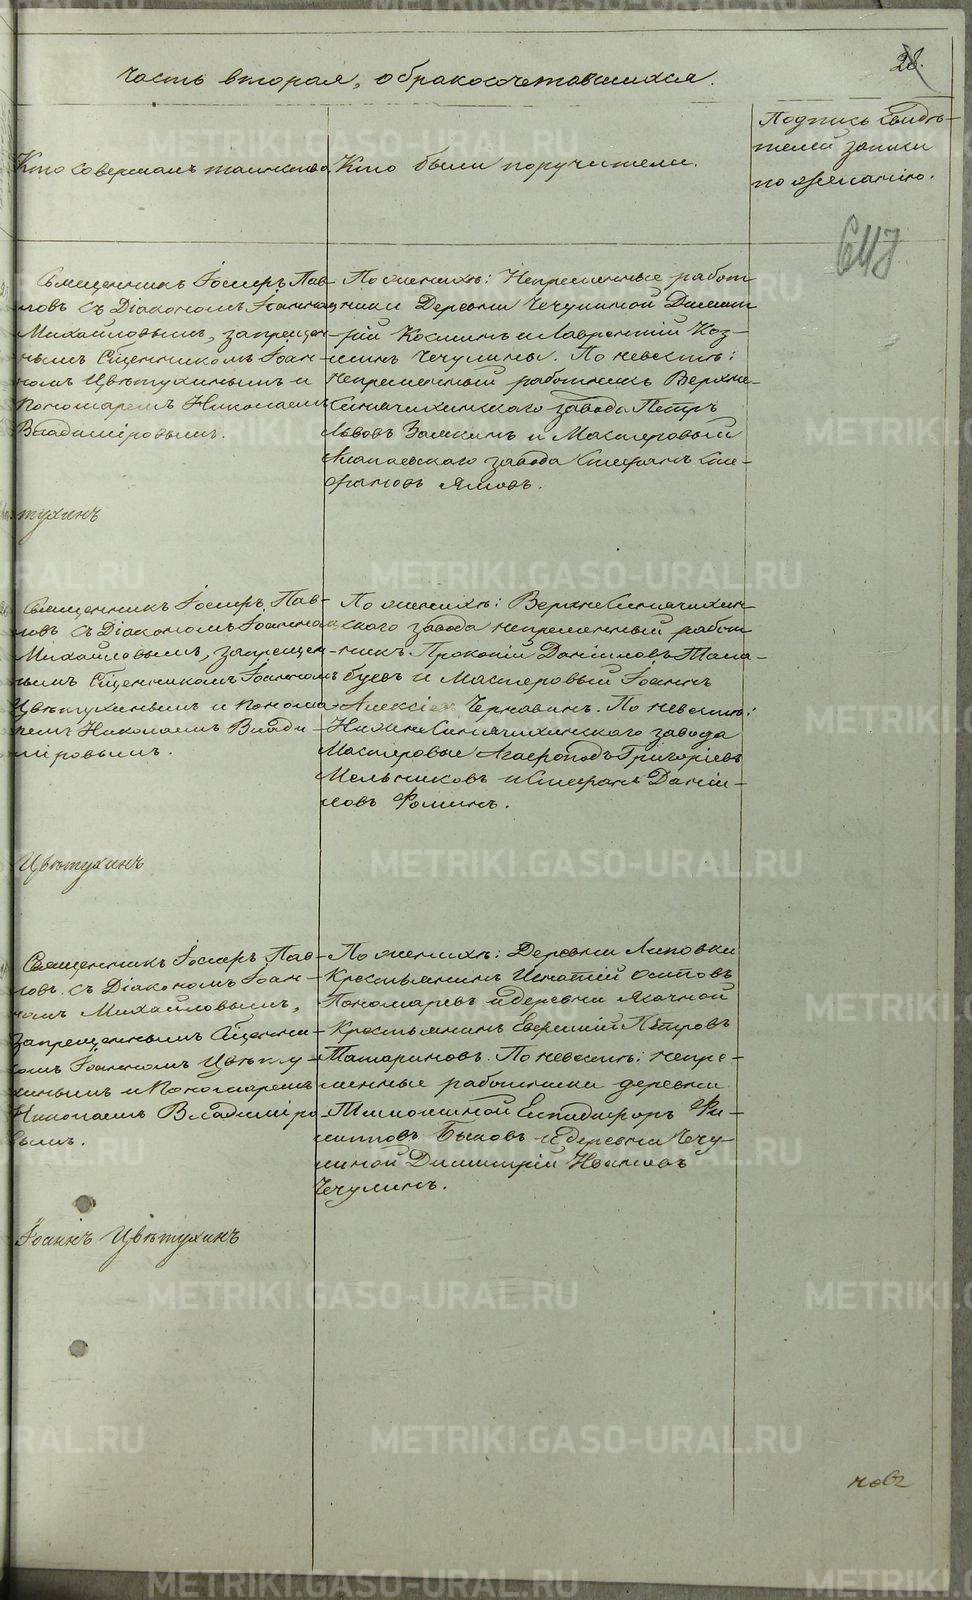 28.
Часть вторая, о бракосочетавшихся.
Кто совершалъ таинство
Кто были поручители.
Подпись свидѣ-
телей записи
по желанію.
648
Священникъ Іосифъ Пав-
ловъ съ Діакономъ Іоанномъ
Михайловымъ, запрещен-
нымъ Сщенникомъ Іоан-
номъ Цвѣтухинымъ и
Пономаремъ Николаемъ
Владиміровымъ.
По женихѣ: Непременные работ
ники Деревни Чечулиной Димит
рій Козминъ и Лаврентій Коз-
минъ Чечулины. По невестѣ:
Непременный работникъ Верхне-
Синячихинскаго завода Петръ
Львовъ Заякинъ и Мастеровый
Алапаевскаго завода Стефанъ Сте-
фановъ Ямовъ.
тухинъ
Священникъ Іосифъ Пав-
ловъ съ Діакономъ Іоанномъ
Михайловымъ, запрещен-
нымъ Сщенникомъ Іоанномъ
Цвѣтухинымъ и Понома-
ремъ Николаемъ Влади-
міровымъ.
По женихѣ: ВерхнеСинячихин-
скаго завода непременный работ
никъ Прокопій Даніиловъ Тала-
буевъ и Мастеровый Іоаннъ
Алексіев Чернавинъ. По невестѣ:
НижнеСинячихинскаго завода
Мастеровые Агафоподъ Григоріевъ
Мельниковъ и Стефанъ Даніи-
ловъ Фоминъ.
Цвѣтухинъ
Священникъ Іосифъ Пав-
ловъ съ Діакономъ Іоан-
номъ Михайловымъ,
Запрещеннымъ Сщенни-
комъ Іоанномъ Цвѣту-
хинымъ и Пономаремъ
Николаемъ Владиміро-
вымъ.
По женихѣ: Деревни Липовки
Крестьянинъ Игнатій Осиповъ
Пономаревъ и деревни Ясачной
Крестьянинъ Евфимій Петровъ
Татариновъ. По невестѣ: непре-
менные работники деревни
Тимошиной Епидифоръ Фи-
липповъ Быковъ и деревни Чечу-
линой Димитрій Ивановъ
Чечулинъ.
Іоаннъ Цвѣтухинъ
новъ
METRIKI.GASO-URAL.RU